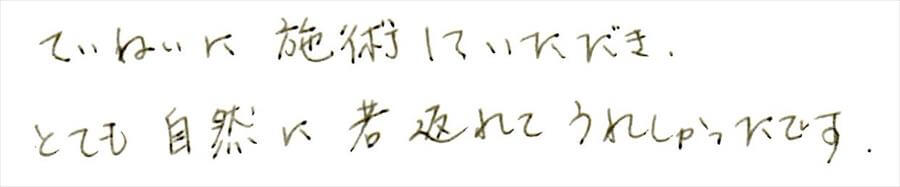 ていねいに 施術していただき.
とても 自然に 若返れて うれしかったです.